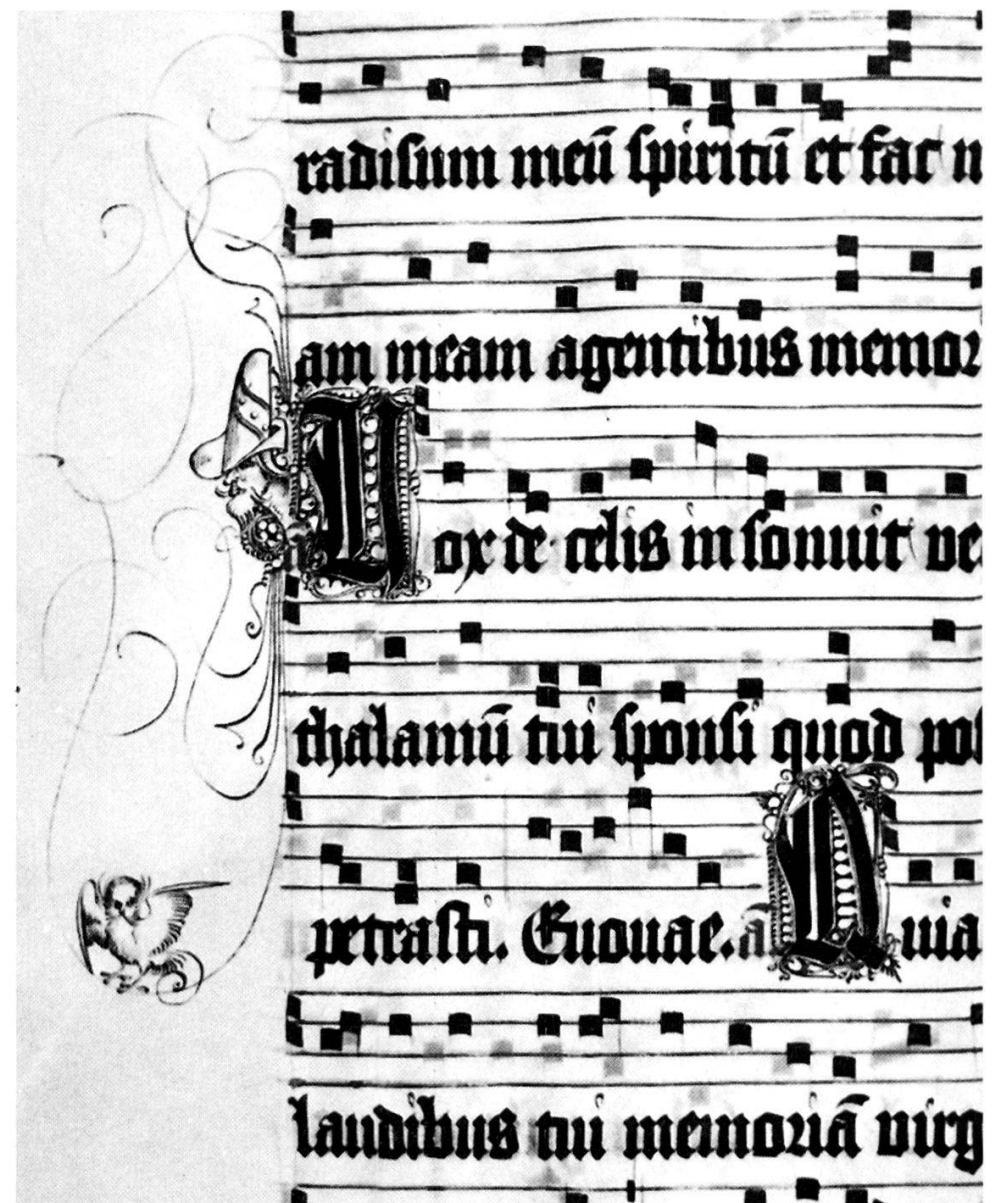 radisum meū spiritū et fac m
am meam agentibus memor
Vox de celis insonuit ve
thalamū tui sponsi quod pos
petrasti. Euouae. a Quia
laudibus tui memoriā virg